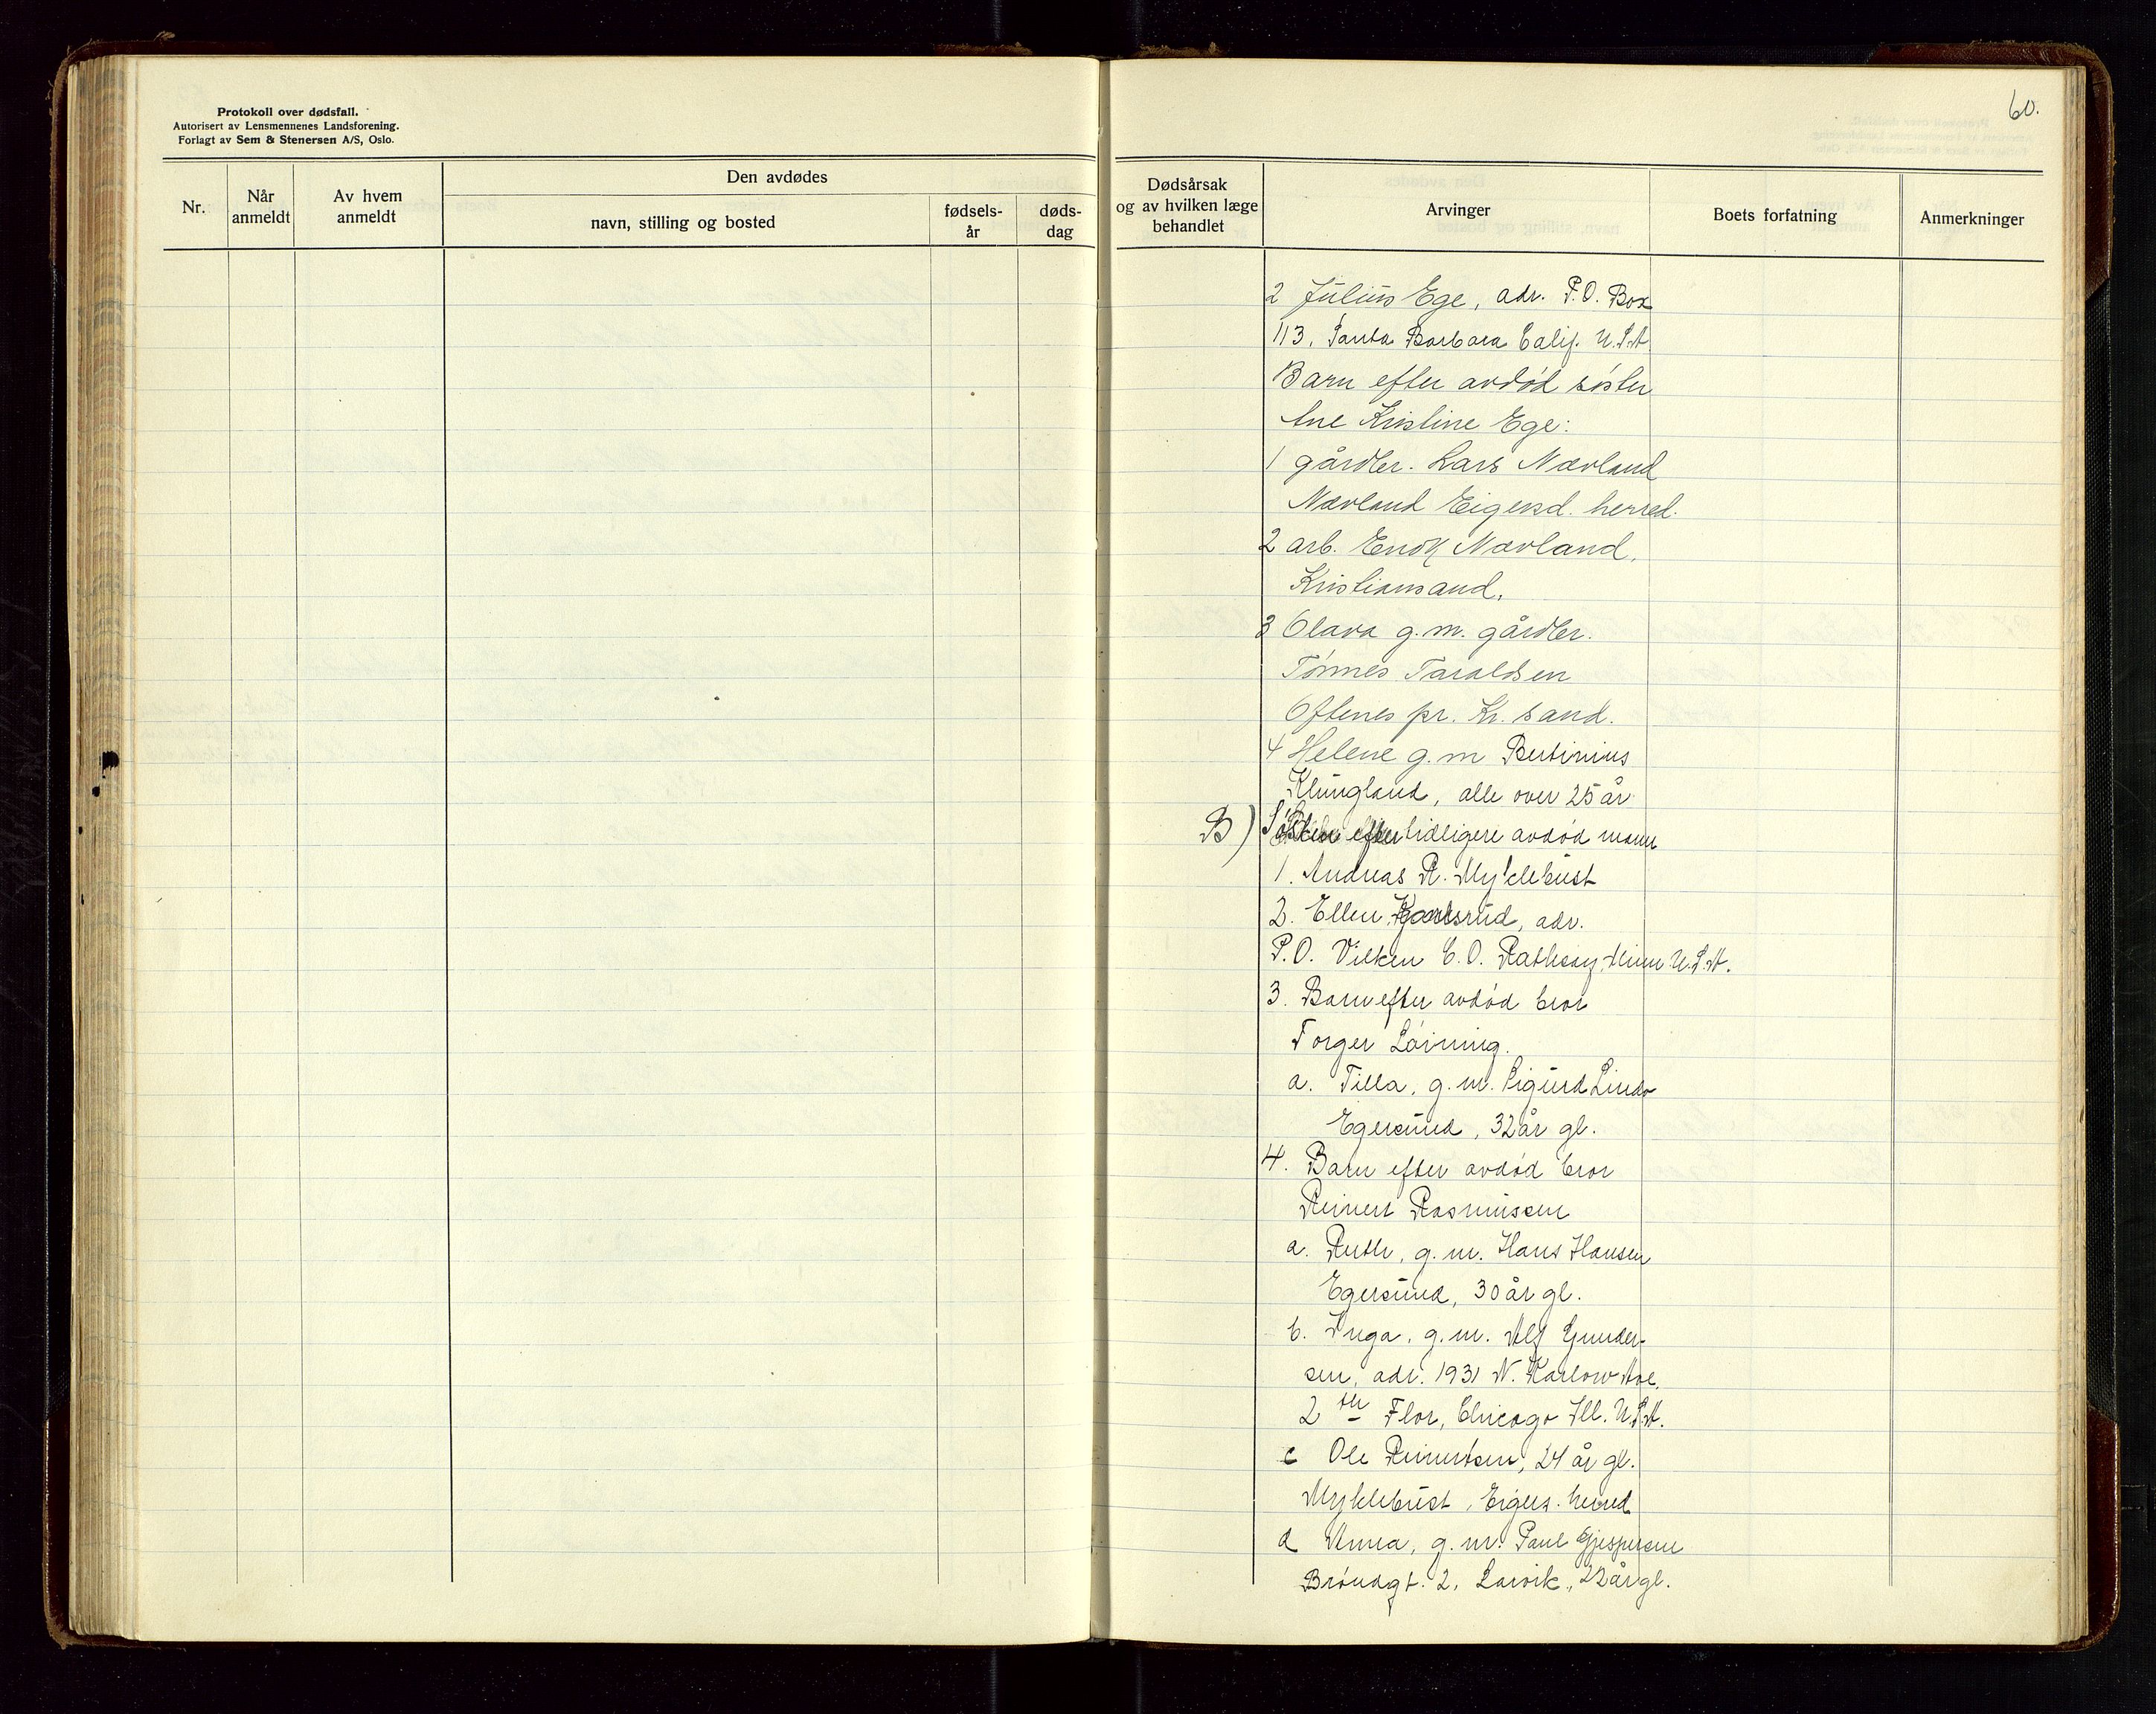 Protokoll over dødsfall.
Autorisert av Lensmennenes Landsforening.
Forlagt av Sem & Stenersen A/S, Oslo.
60.
Nr.
Når anmeldt
Av hvem anmeldt
Den avdødes
navn, stilling og bosted
fødsels-år
døds-dag
Dødsårsak og av hvilken læge behandlet
Arvinger
Boets forfatning
Anmerkninger
2 Julius Ege, adr. P.O. Box
113. Santa Barbara Calif. U.S.A
Barn efter avdød søster
Ane Kristine Ege:
1 gårdbr. Lars Nærland
Nærland Eigersd. herred.
2 arb. Enok Nærland,
Kristiansand.
3 Olava g.m. gårdbr.
Tønnes Taraldsen
Oftenes pr. Kr. sand.
4 Helene g.m Bertinius
Klungland, alle over 25 år
B) Søsken efter tidligere avdød mann
1. Andreas R. Myklebust
2. Ellen, adr.
P.O. Vilken C.O. U.S.A.
3. Barn efter avdød bror
Torger Løining.
a. Tilla, g.m. Sigurd Lindø
Egersund, 32 år gl.
4. Barn efter avdød bror
Reinert Rasmussen
a. Ruth, g.m. Hans Hansen
Egersund, 30 år gl.
b. Inga, g.m. Alf Gunder-
sen, adr. 1931 N. Karlow Ave.
2 Flor, Chicago Ill. U.S.A.
c Ole Reinertsen, 24 år gl.
Myklebust, Eigers. herred
d Anna, g.m. Paul Gjespersen
Brøndgt. 2, Larvik, 22 år gl.